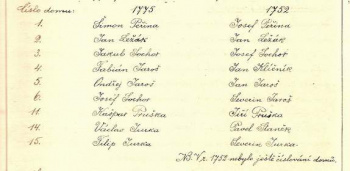 Číslo domu: 1775 1752
1. Šimon Peřina Josef Peřina
2. Jan Lešák Jan Lešák
3. Jakub Sochor Josef Sochor
4. Fabián Jaroš Jan Křičník
5. Ondřej Jaroš Jan Jaroš
6. Josef Sochor Severin Jaroš
11. Kašpar Pruška Jiří Pruška
14. Václav Jurka Pavel Staněk
15. Filip Jurka Severin Jurka
NB. V r. 1752 nebylo ještě číslování domů.